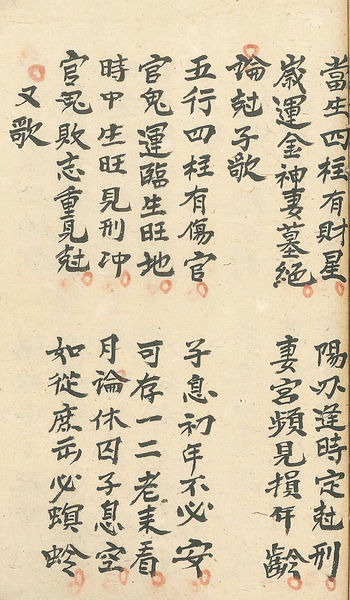 當生四柱有財星　陽刃逢時定尅刑
歲運金神妻墓絕　妻宮頻見損年齡
論尅子歌
五行四柱有傷官　子息初年不必安
官鬼運臨生旺地　可存一二老來看
時中生旺見刑冲　月論休囚子息空
官鬼敗忘重見尅　如從庶出必螟蛉
又歌